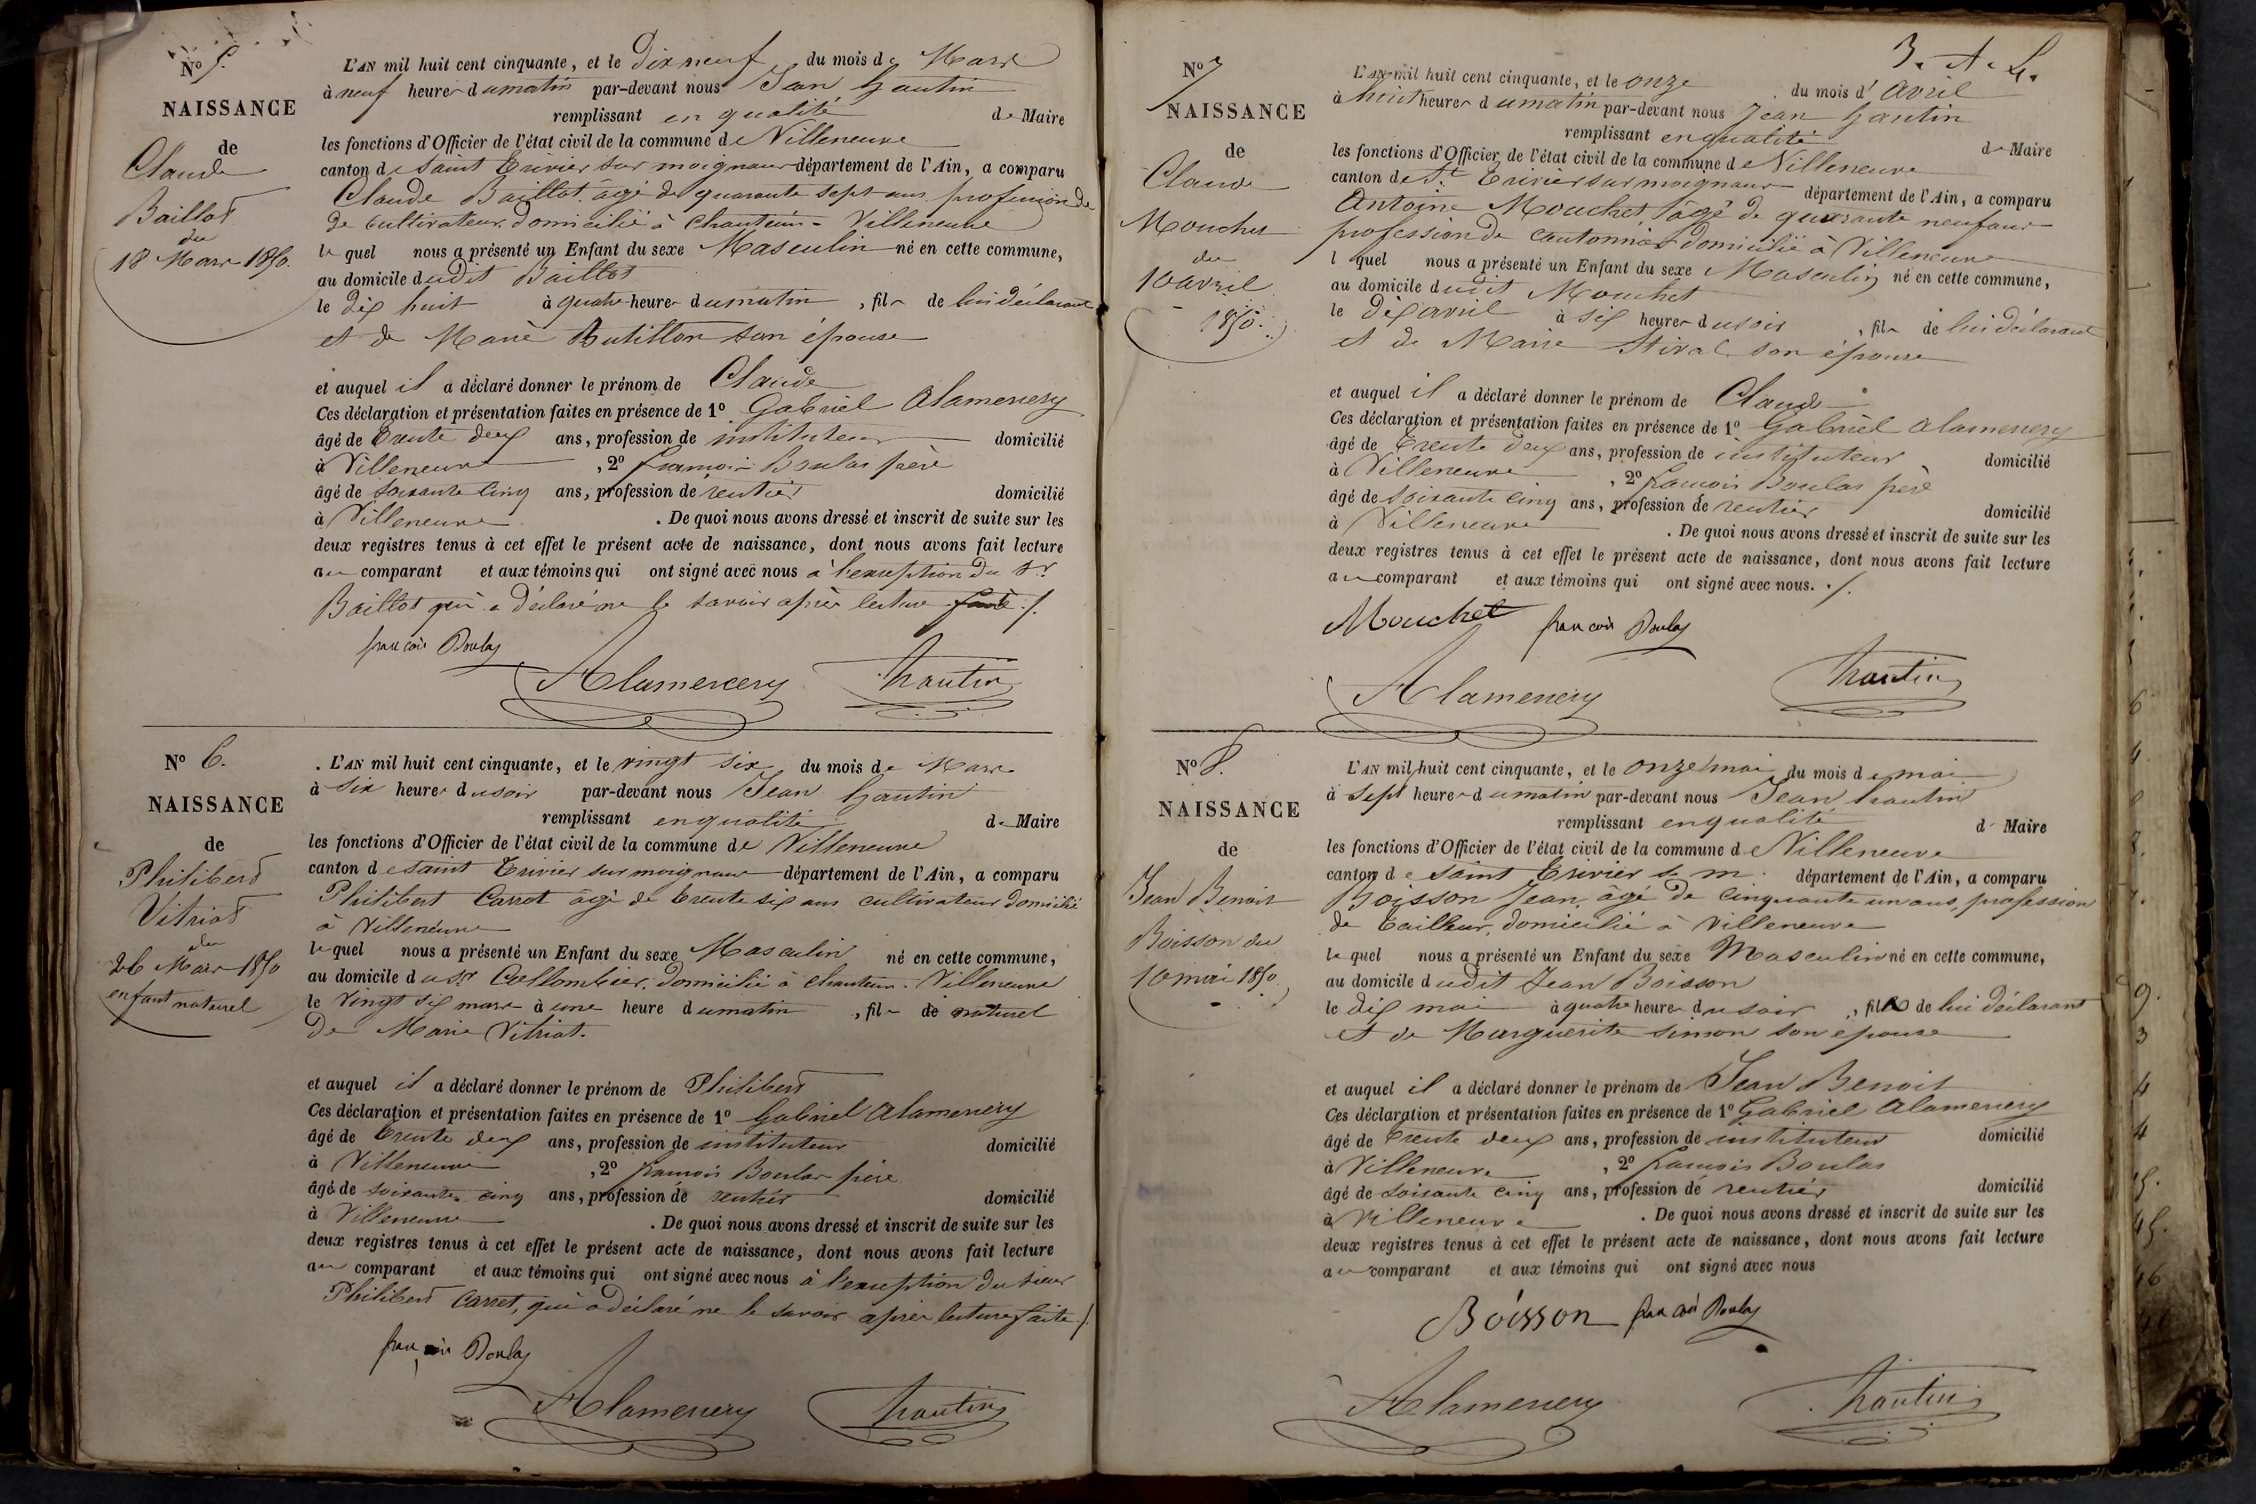 N° 5.
NAISSANCE
de
Claude
Baillot
du
18 Mars 1850.
L'AN mil huit cent cinquante, et le dix neuf du mois de Mars
à neuf heures du matin par-devant nous Jean
remplissant en qualité de Maire
les fonctions d'Officier de l'état civil de la commune de Villeneuve
canton de Saint Trivier sur moignans département de l'Ain, a comparu
Claude Baillot âgé de quarante sept ans profession de
de cultivateur domicilié à Chanteins - Villeneuve
lequel nous a présenté un Enfant du sexe Masculin né en cette commune,
au domicile dudit Baillot
le dix huit à quatre heures du matin, fils de lui déclarant
et de Marie Butillon son épouse
et auquel il a déclaré donner le prénom de Claude
Ces déclaration et présentation faites en présence de 1° Gabriel Alamercery
âgé de trente deux ans, profession de instituteur domicilié
à Villeneuve, 2° françois Boulas père
âgé de soixante cinq ans, profession de rentier domicilié
à Villeneuve. De quoi nous avons dressé et inscrit de suite sur les
deux registres tenus à cet effet le présent acte de naissance, dont nous avons fait lecture
au comparant et aux témoins qui ont signé avec nous à l'exception du Sr
Baillot qui a déclaré ne le savoir après lecture faite ./.
francois Boulas
Alamercery
N° 6.
NAISSANCE
de
Philibert
Vitriat
du
26 Mars 1850
enfant naturel
L'AN mil huit cent cinquante, et le vingt six du mois de Mars
à six heures du soir par-devant nous Jean
remplissant en qualité de Maire
les fonctions d'Officier de l'état civil de la commune de Villeneuve
canton de saint Trivier sur moignans département de l'Ain, a comparu
Philibert Carret âgé de trente six ans cultivateur domicilié
à Villeneuve
lequel nous a présenté un Enfant du sexe Masculin né en cette commune,
au domicile du Sr Collombier, domicilié à Chanteins - Villeneuve
le vingt six mars à une heure du matin, fils de naturel
De Marie Vitriat.
et auquel il a déclaré donner le prénom de Philibert
Ces déclaration et présentation faites en présence de 1° Gabriel Alamercery
âgé de trente deux ans, profession de instituteur domicilié
à Villeneuve, 2° françois Boulas père
âgé de soixante cinq ans, profession de rentier domicilié
à Villeneuve. De quoi nous avons dressé et inscrit de suite sur les
deux registres tenus à cet effet le présent acte de naissance, dont nous avons fait lecture
au comparant et aux témoins qui ont signé avec nous à l'exception du sieur
Philibert Carret, qui a déclaré ne le savoir après lecture faite ./.
francois Boulas
Alamercery
N° 7
NAISSANCE
de
Claude
Mouchet
du
10 avril
1850.
L'AN mil huit cent cinquante, et le onze du mois d'avril
à huit heures du matin par-devant nous Jean
remplissant en qualité de Maire
les fonctions d'Officier de l'état civil de la commune de Villeneuve
canton de St Trivier sur moignans département de l'Ain, a comparu
Antoine Mouchet, âgé de quarante neuf ans
profession de cantonnier domicilié à Villeneuve
lequel nous a présenté un Enfant du sexe Masculin né en cette commune,
au domicile dudit Mouchet
le dix avril à six heures du soir, fils de lui déclarant
et de Marie son épouse
et auquel il a déclaré donner le prénom de Claude
Ces déclaration et présentation faites en présence de 1° Gabriel Alamercery
âgé de trente deux ans, profession de instituteur domicilié
à Villeneuve, 2° françois Boulas père
âgé de soixante cinq ans, profession de rentier domicilié
à Villeneuve. De quoi nous avons dressé et inscrit de suite sur les
deux registres tenus à cet effet le présent acte de naissance, dont nous avons fait lecture
au comparant et aux témoins qui ont signé avec nous. ./.
Mouchet francois Boulas
Alamercery
N° 8.
NAISSANCE
de
Jean Benoit
Boisson du
10 mai 1850
L'AN mil huit cent cinquante, et le onze mai du mois de mai
à sept heures du matin par-devant nous Jean
remplissant en qualité de Maire
les fonctions d'Officier de l'état civil de la commune de Villeneuve
canton de Saint Trivier s. m. département de l'Ain, a comparu
Boisson Jean, âgé de cinquante un ans, profession
de tailleur, domicilié à Villeneuve
lequel nous a présenté un Enfant du sexe Masculin né en cette commune,
au domicile dudit Jean Boisson
le dix mai à quatre heures du soir, fils de lui déclarant
et de Marguerite simon son épouse
et auquel il a déclaré donner le prénom de Jean Benoit
Ces déclaration et présentation faites en présence de 1° Gabriel Alamercery
âgé de trente deux ans, profession de instituteur domicilié
à Villeneuve, 2° françois Boulas
âgé de soixante cinq ans, profession de rentier domicilié
à Villeneuve. De quoi nous avons dressé et inscrit de suite sur les
deux registres tenus à cet effet le présent acte de naissance, dont nous avons fait lecture
au comparant et aux témoins qui ont signé avec nous
Boisson francois Boulas
Alamercery